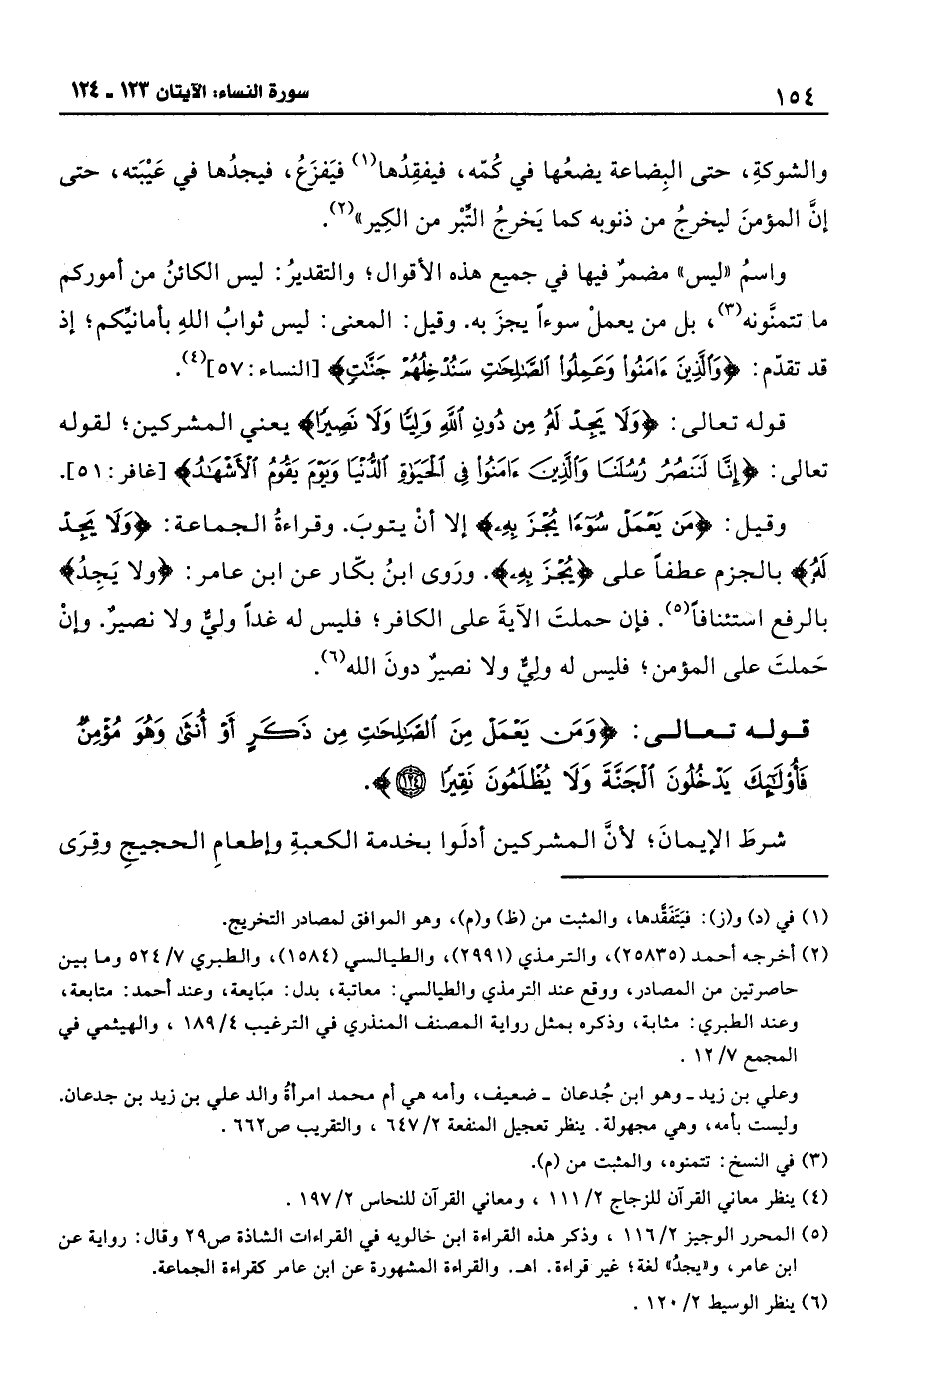 ١٥٤
سورة النساء: الآيتان ١٢٣ ـ ١٢٤
والشوكةِ، حتى البِضاعة يضعُها في كُمّه، فيفقِدُها(١) فيَفزَعُ، فيجدُها في عَيْبَته، حتى
إنَّ المؤمنَ ليخرجُ من ذنوبه كما يَخرجُ التِّبْر من الكِير»(٢).
واسمُ «ليس» مضمرٌ فيها في جميع هذه الأقوال؛ والتقديرُ: ليس الكائنُ من أموركم
ما تتمنَّونه(٣)، بل من يعملْ سوءاً يجزَ به. وقيل: المعنى: ليس ثوابُ اللهِ بأمانيِّكم؛ إذ
قد تقدّم: ﴿وَٱلَّذِينَ ءَامَنُوا۟ وَعَمِلُوا۟ ٱلصَّٰلِحَٰتِ سَنُدْخِلُهُمْ جَنَّٰتٍ﴾ [النساء: ٥٧](٤).
قوله تعالى: ﴿وَلَا يَجِدْ لَهُۥ مِن دُونِ ٱللَّهِ وَلِيًّا وَلَا نَصِيرًا﴾ يعني المشركين؛ لقوله
تعالى: ﴿إِنَّا لَنَنصُرُ رُسُلَنَا وَٱلَّذِينَ ءَامَنُوا۟ فِى ٱلْحَيَوٰةِ ٱلدُّنْيَا وَيَوْمَ يَقُومُ ٱلْأَشْهَٰدُ﴾ [غافر: ٥١].
وقيل: ﴿مَن يَعْمَلْ سُوٓءًا يُجْزَ بِهِۦ﴾ إلا أنْ يتوبَ. وقراءةُ الجماعة: ﴿وَلَا يَجِدْ
لَهُۥ﴾ بالجزم عطفاً على ﴿يُجْزَ بِهِۦ﴾. ورَوى ابنُ بكّار عن ابن عامر: ﴿ولا يَجِدُ﴾
بالرفع استئنافاً(٥). فإن حملتَ الآيةَ على الكافر؛ فليس له غداً وليٌّ ولا نصيرٌ. وإنْ
حَملتَ على المؤمن؛ فليس له وليٌّ ولا نصيرٌ دونَ الله(٦).
قوله تعالى: ﴿وَمَن يَعْمَلْ مِنَ ٱلصَّٰلِحَٰتِ مِن ذَكَرٍ أَوْ أُنثَىٰ وَهُوَ مُؤْمِنٌ
فَأُو۟لَٰٓئِكَ يَدْخُلُونَ ٱلْجَنَّةَ وَلَا يُظْلَمُونَ نَقِيرًا ١٢٤﴾.
شرطَ الإيمانَ؛ لأنَّ المشركين أدلَوا بخدمة الكعبةِ وإطعامِ الحجيجِ وقِرَى
(١) في (د) و(ز): فيَتَفَقَّدها، والمثبت من (ظ) و(م)، وهو الموافق لمصادر التخريج.
(٢) أخرجه أحمد (٢٥٨٣٥)، والترمذي (٢٩٩١)، والطيالسي (١٥٨٤)، والطبري ٥٢٤/٧ وما بين
حاصرتين من المصادر، ووقع عند الترمذي والطيالسي: معاتبة، بدل: مبَايعة، وعند أحمد: متابعة،
وعند الطبري: مثابة، وذكره بمثل رواية المصنف المنذري في الترغيب ١٨٩/٤ ، والهيثمي في
المجمع ١٢/٧ .
وعلي بن زيد ـ وهو ابن جُدعان ـ ضعيف، وأمه هي أم محمد امرأةُ والد علي بن زيد بن جدعان.
وليست بأمه، وهي مجهولة. ينظر تعجيل المنفعة ٦٤٧/٢ ، والتقريب ص٦٦٢ .
(٣) في النسخ: تتمنوه، والمثبت من (م).
(٤) ينظر معاني القرآن للزجاج ١١١/٢ ، ومعاني القرآن للنحاس ١٩٧/٢ .
(٥) المحرر الوجيز ١١٦/٢ ، وذكر هذه القراءة ابن خالويه في القراءات الشاذة ص٢٩ وقال: رواية عن
ابن عامر، و«يجدُ» لغة؛ غير قراءة. اهـ. والقراءة المشهورة عن ابن عامر كقراءة الجماعة.
(٦) ينظر الوسيط ١٢٠/٢ .